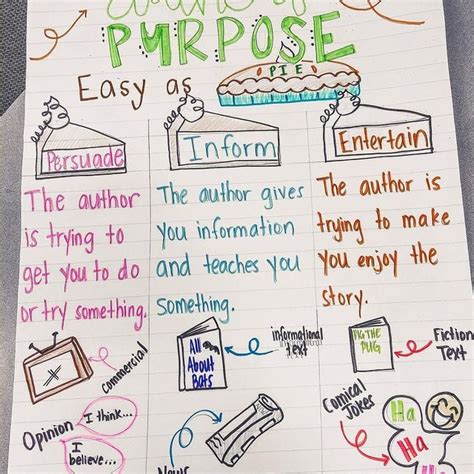 PURPOSE
Easy as PIE
Persuade
The author
is trying to
get you to do
or try something.
commercial
Opinion
I think...
I
believe...
Inform
The author gives
you information
and teaches you
something.
All
About
Bats
informational
text
News
Entertain
The author is
trying to make
you enjoy the
story.
PIG THE
PUG
Fiction
Text
Comical
Jokes
Ha
Ha